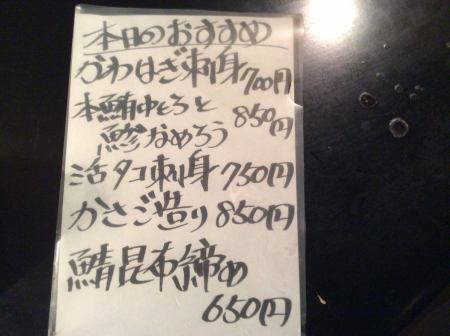 本日のおすすめ
がわはぎ刺身700円
本鮪中とろと
鯵なめろう 850円
活タコ刺身 750円
かさご造り 850円
鯖昆布締め
650円